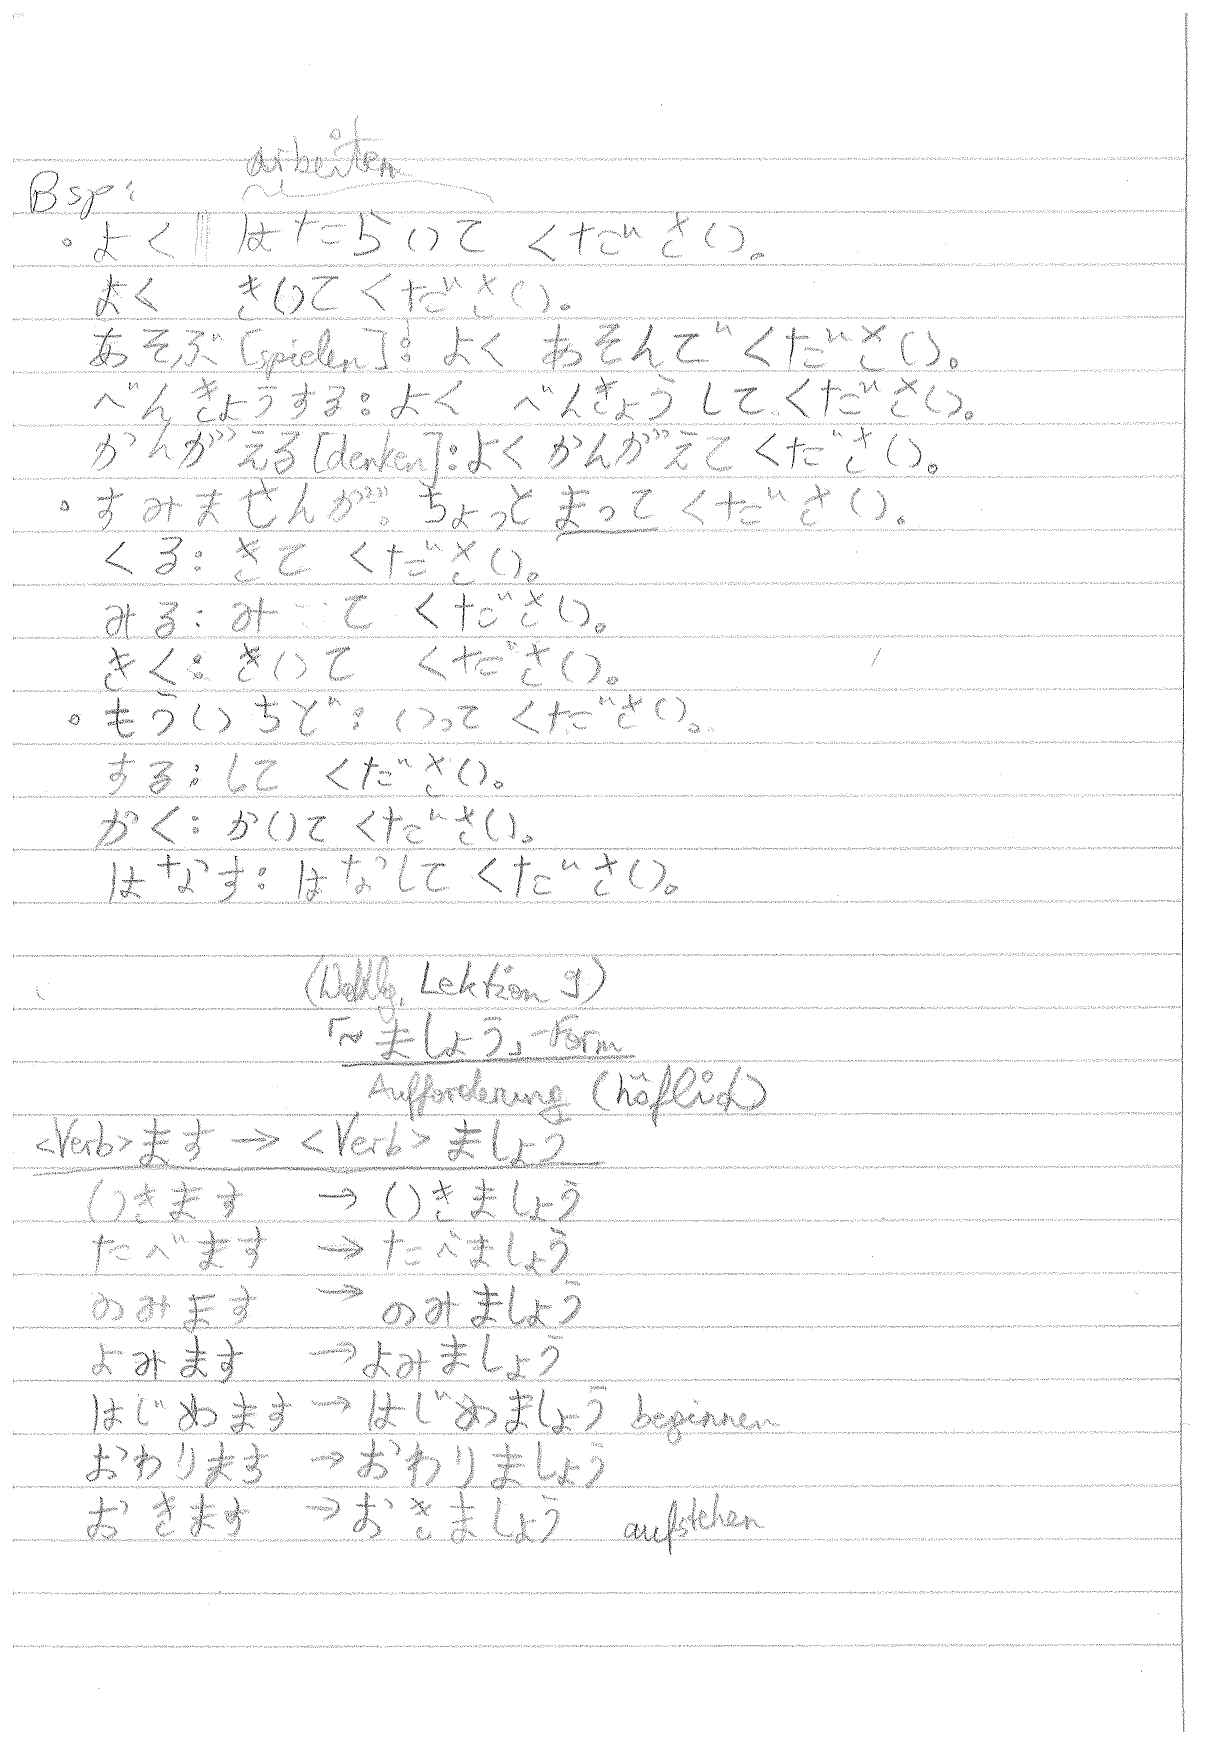 arbeiten
Bsp:
。よく はたらいて ください。
よく きいて ください。
あそぶ [spielen]: よく あそんで ください。
べんきょうする: よく べんきょうして ください。
かんがえる [denken]: よく かんがえて ください。
。すみませんが。ちょっと まって ください。
くる: きて ください。
みる: みて ください。
きく: きいて ください。
。もういちど: いって ください。
する: して ください。
かく: かいて ください。
はなす: はなして ください。
Lektion 9)
「~ましょう」-Form
Aufforderung (höflich)
<Verb>ます → <Verb>ましょう
いきます → いきましょう
たべます → たべましょう
のみます → のみましょう
よみます → よみましょう
はじめます → はじめましょう beginnen
おわります → おわりましょう
おきます → おきましょう aufstehen